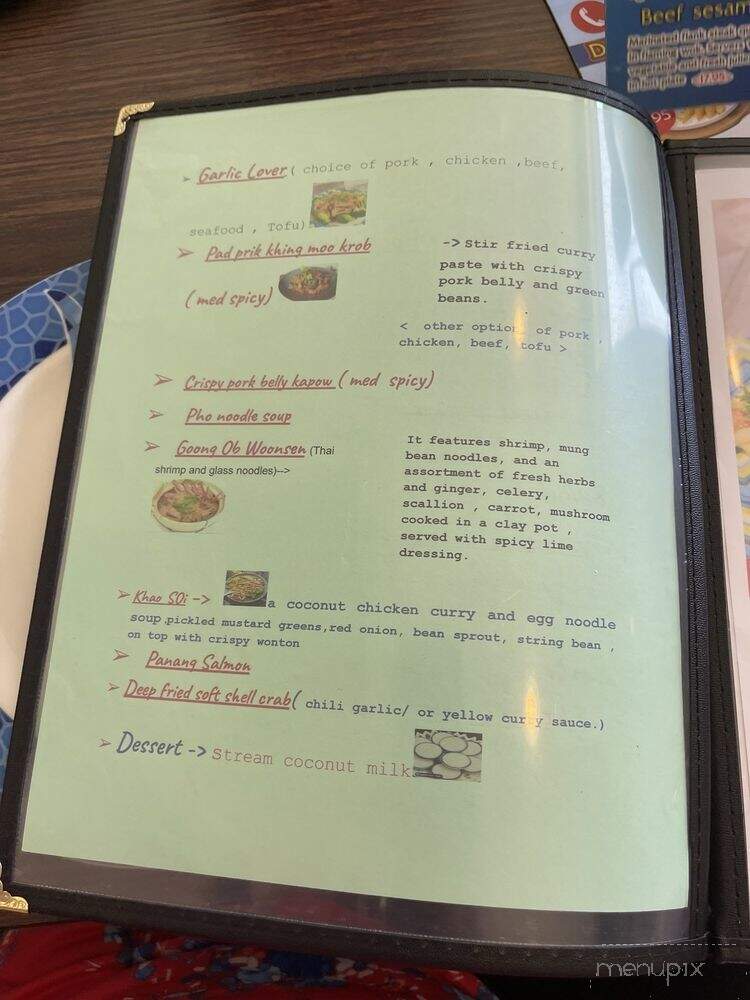 Beef sesam
Marinated flank steak
in flaming wok. Served
vegetable and fresh
in hot plate 17.95
95
D
➢ Garlic Lover ( choice of pork , chicken ,beef,
seafood , Tofu)
➢ Pad prik khing moo krob
(med spicy)
->Stir fried curry
paste with crispy
pork belly and green
beans.
< other option of pork ,
chicken, beef, tofu >
➢ Crispy pork belly kapow ( med spicy)
➢ Pho noodle soup
➢ Goong Ob Woonsen (Thai
shrimp and glass noodles)-->
It features shrimp, mung
bean noodles, and an
assortment of fresh herbs
and ginger, celery,
scallion , carrot, mushroom
cooked in a clay pot ,
served with spicy lime
dressing.
➢ Khao SOi -> a coconut chicken curry and egg noodle
soup,pickled mustard greens,red onion, bean sprout, string bean ,
on top with crispy wonton
➢ Panang Salmon
➢ Deep fried soft shell crab( chili garlic/ or yellow curry sauce.)
➢ Dessert -> Stream coconut milk
menupix